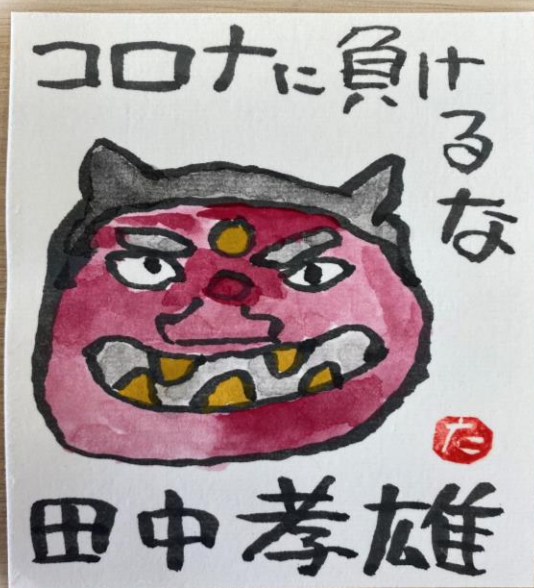 コロナに負けるな
た
田中孝雄